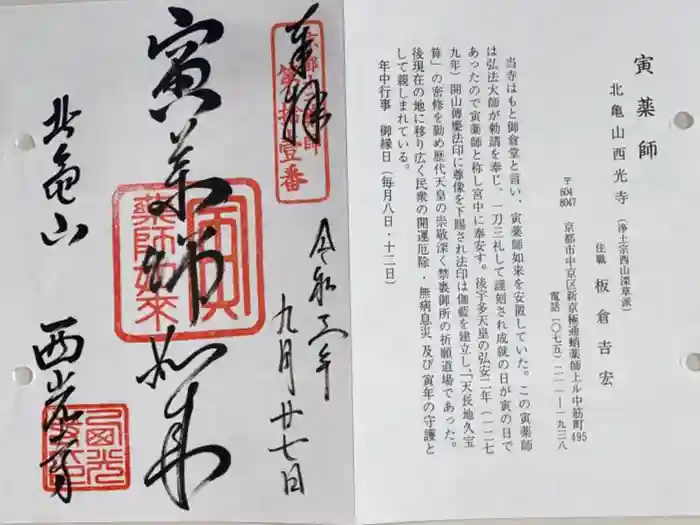 奉拝
京都十二薬師
第拾壹番
令和三年
九月廿七日
寅薬師如来
寅
薬師如来
北亀山
西光寺
寅薬師
北亀山西光寺
(浄土宗西山深草派)
住職 板倉吉宏
〒604
8047
京都市中京区新京極通蛸薬師上ル中筋町495
電話(〇七五)二一一―一九三八
当寺はもと御倉堂と言い、寅薬師如来を安置していた。この寅薬師
は弘法大師が勅請を奉じ、一刀三礼して謹刻され成就の日が寅の日で
あったので寅薬師と称し宮中に奉安す。後宇多天皇の弘安二年(一二七
九年)開山傅慶法印に尊像を下賜され法印は伽藍を建立し、「天長地久宝
算」の密修を勤め歴代天皇の崇敬深く禁裏御所の祈願道場であった。
後現在の地に移り広く民衆の開運厄除・無病息災 及び寅年の守護と
して親しまれている。
年中行事 御縁日(毎月八日・十二日)